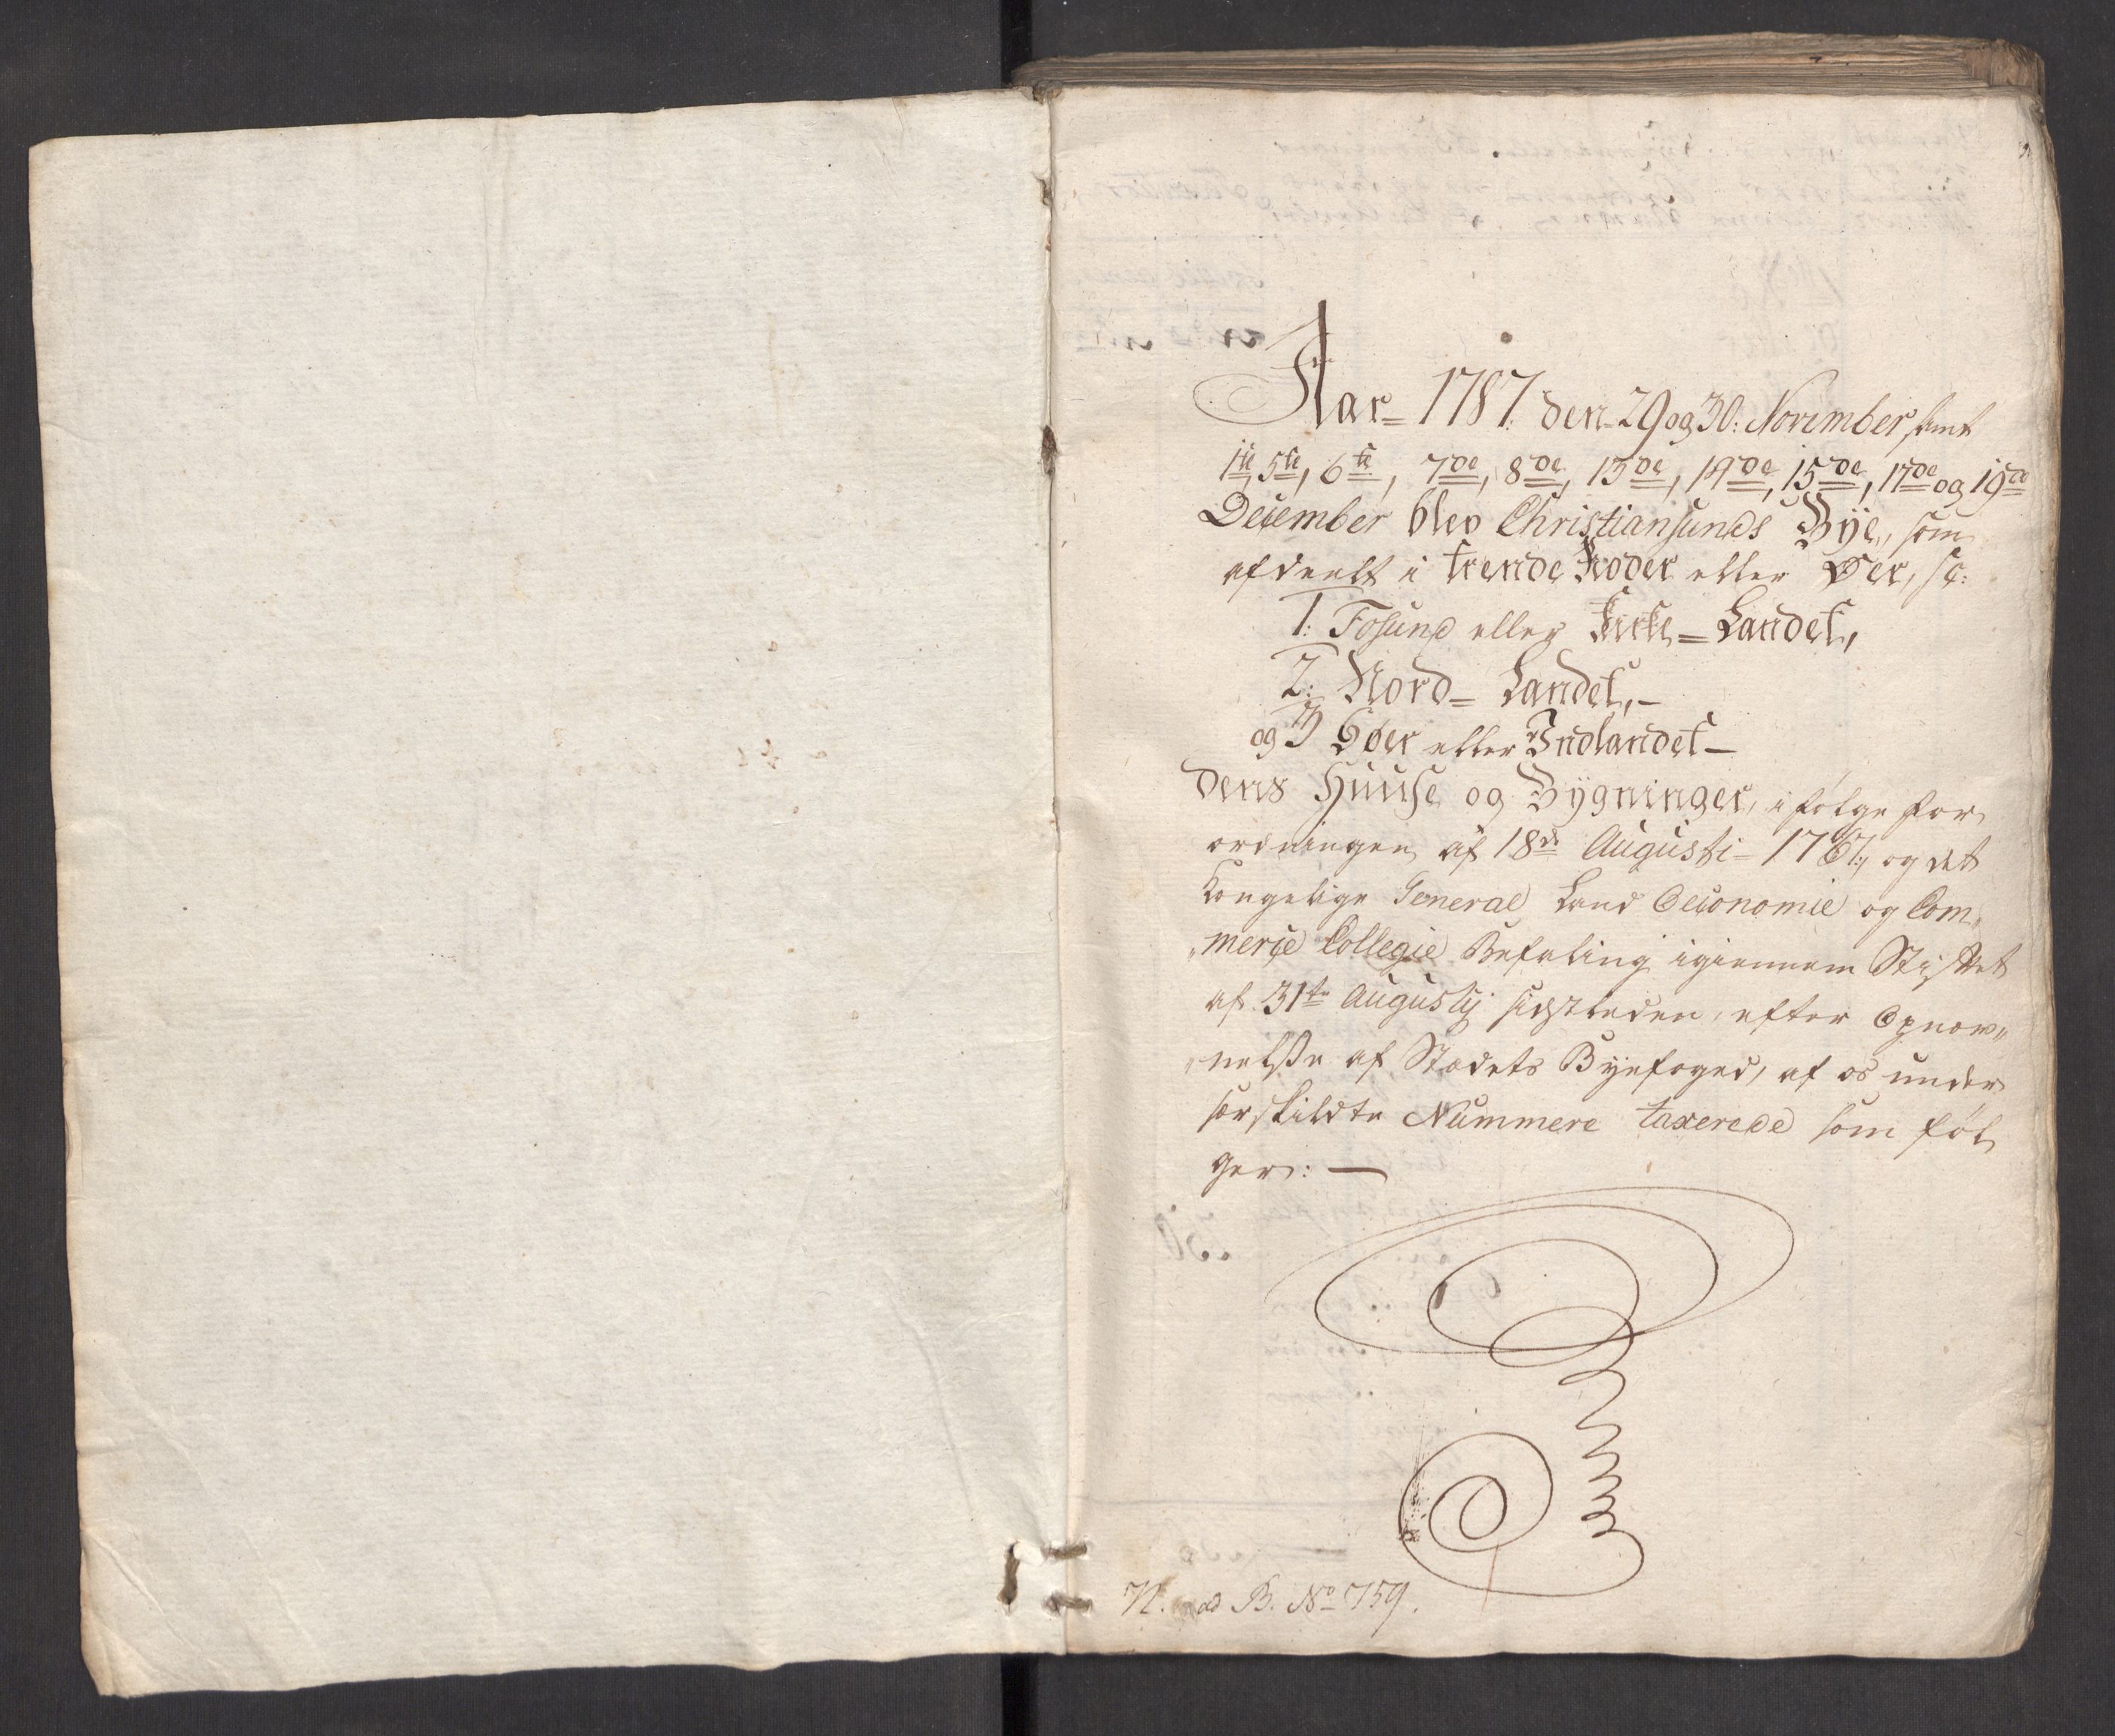 Aar= 1787 den 29 og 30: November samt
1te 5te, 6te, 7de, 8de, 13de, 14de, 15de, 17de og 19de
December blev Christiansunds Bÿe, som
afdeelt i trende Roder eller Øer, sc:
1: Fosund eller Kirke=Landet,
2: Nord= Landet,–
og 3 Søer eller Indlandet–
dens Huuse og Bÿgninger, i følge for
ordningen af 18de Augusti= 1767, og det
Kongelige General Land Oeconomie og Com„
„merce Collegie Befaling igiennem Stiftet
af 31te Augustij sidstleden, efter Opnev„
„nelse af Stædets Bÿefoged, af os under
særskildte Nummere taxerede som føl
ger: —
N. ad B. No 759.